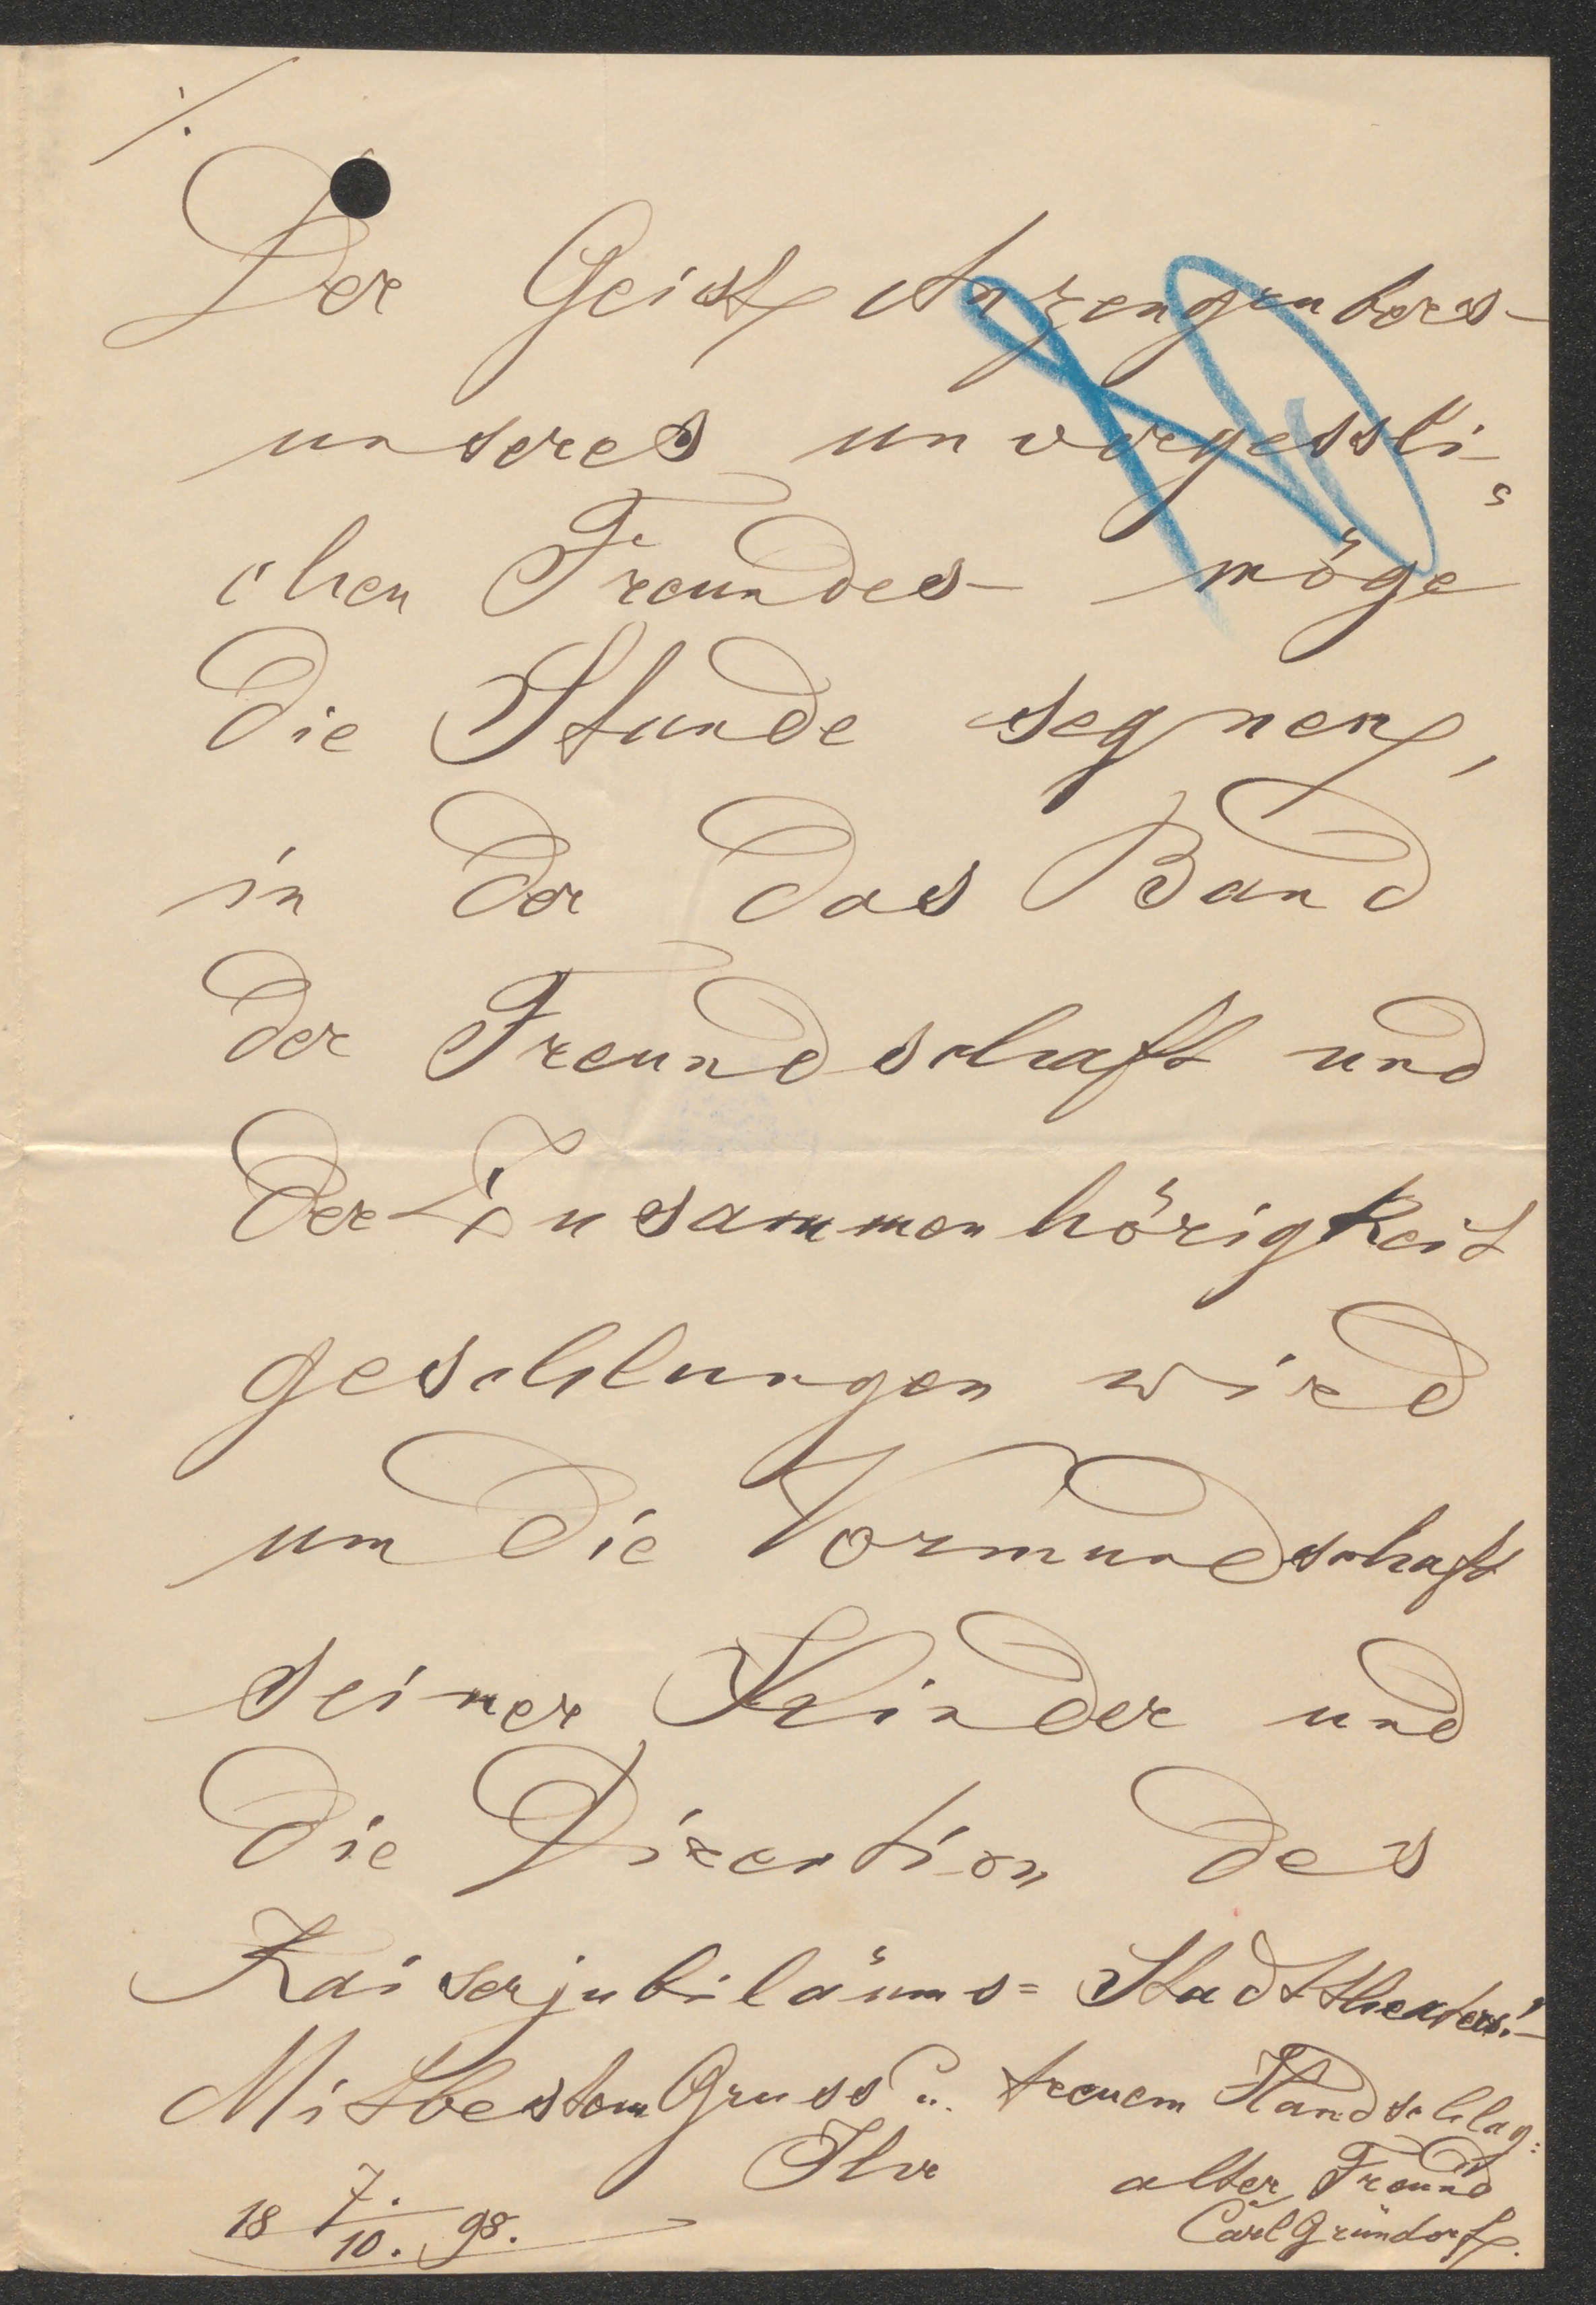 ./.
Der Geist Anzengrubers –
unseres unvergessli-
chen Freundes – möge
die Stunde segnen,
in der das Band
der Freundschaft und
der Zusammenhörigkeit
geschlungen wird
um die Vormundschaft
seiner Kinder und
die Direction des
Kaiserjubiläums= Stadttheaters! –
Mit bestem Gruss u. treuem Handschlag:
Ihr alter Freund
18 7./10. 98. Carl Gründorf.